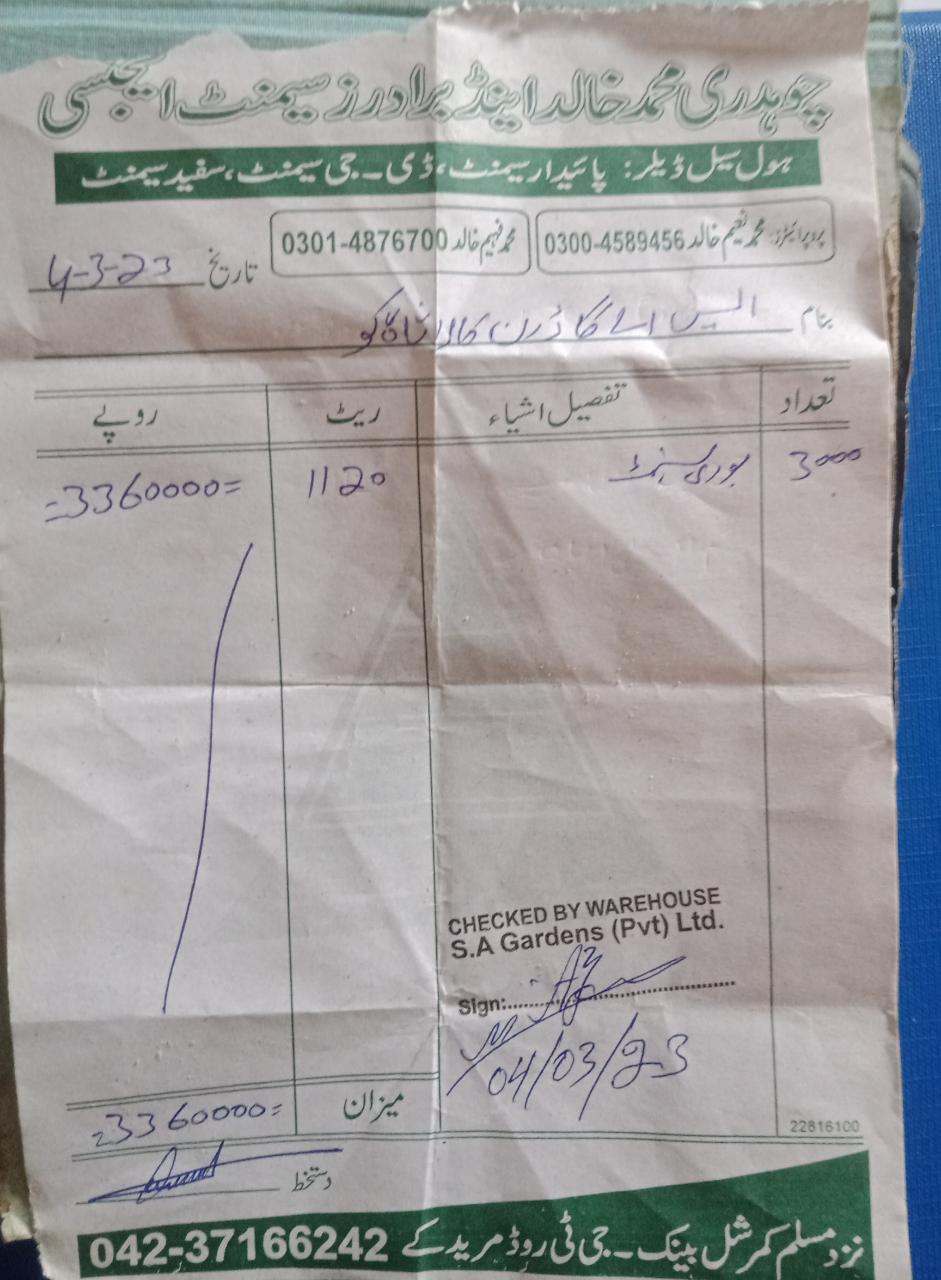 چوہدری محمد خالد اینڈ برادرز سیمنٹ ایجنسی
ہول سیل ڈیلر: پائیدار سیمنٹ، ڈی۔جی سیمنٹ، سفید سیمنٹ
پروپرائیٹرز: محمد نعیم خالد 0300-4589456 محمد فہیم خالد 0301-4876700
تاریخ 4-3-23
بنام ایس اے گارڈن کالا شاہ کاکو
تعداد تفصیل اشیاء ریٹ روپے
3000 بوری سیمنٹ 1120 =3360000=
CHECKED BY WAREHOUSE
S.A Gardens (Pvt) Ltd.
Sign:
04/03/23
میزان =3360000=
22816100
دستخط
نزد مسلم کمرشل بینک۔ جی ٹی روڈ مریدکے 042-37166242